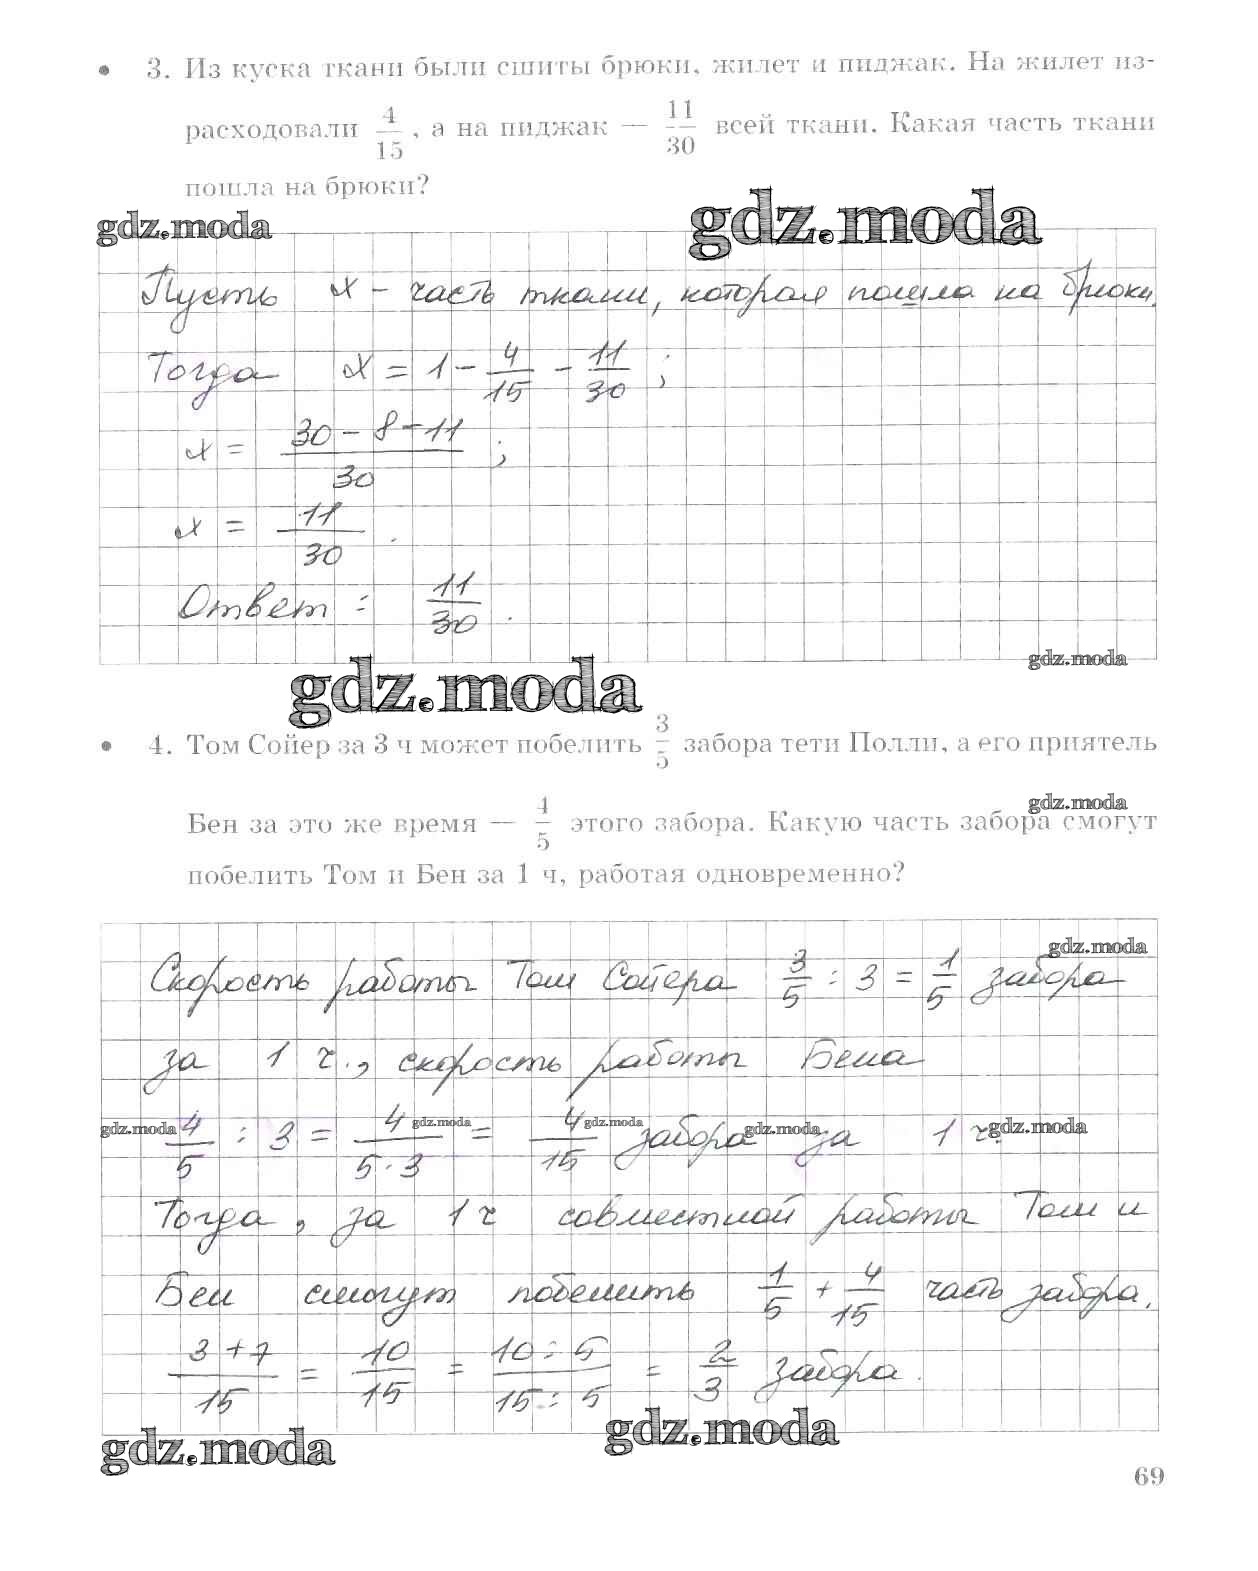 • 3. Из куска ткани были сшиты брюки, жилет и пиджак. На жилет из-
расходовали 4/15, а на пиджак — 11/30 всей ткани. Какая часть ткани
пошла на брюки?
gdz.moda gdz.moda
Пусть x – часть ткани, которая пошла на брюки.
Тогда x = 1 - 4/15 - 11/30 ;
x = (30 - 8 - 11)/30 ;
x = 11/30 .
Ответ : 11/30 .
gdz.moda
gdz.moda
• 4. Том Сойер за 3 ч может побелить 3/5 забора тети Полли, а его приятель
gdz.moda
Бен за это же время — 4/5 этого забора. Какую часть забора смогут
побелить Том и Бен за 1 ч, работая одновременно?
gdz.moda
Скорость работы Том Сойера 3/5 : 3 = 1/5 забора
за 1 ч., скорость работы Бена
gdz.moda gdz.moda gdz.moda gdz.moda gdz.moda
4/5 : 3 = 4/(5·3) = 4/15 забора за 1 ч.
Тогда, за 1 ч совместной работы Том и
Бен смогут побелить 1/5 + 4/15 часть забора.
(3+7)/15 = 10/15 = (10:5)/(15:5) = 2/3 забора.
gdz.moda gdz.moda
69